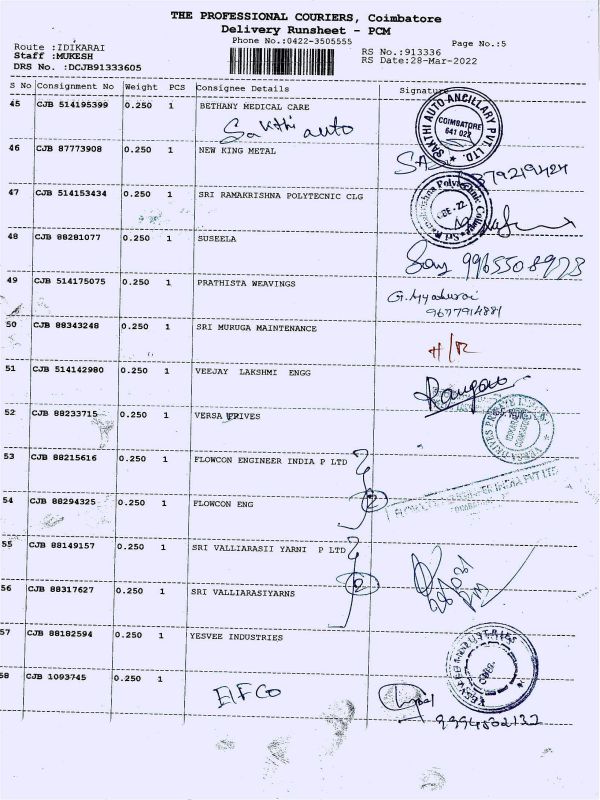 THE PROFESSIONAL COURIERS, Coimbatore
Delivery Runsheet - PCM
Phone No.:0422-3505555
Page No.:5
Route :IDIKARAI
RS No.:913336
Staff :MUKESH
RS Date:28-Mar-2022
DRS No. :DCJB91333605
S No Consignment No Weight PCS Consignee Details Signature
45 CJB 514195399 0.250 1 BETHANY MEDICAL CARE
Sakthi auto
SAKTHI AUTO ANCILLARY PVT. LTD.
COIMBATORE
641 022
46 CJB 87773908 0.250 1 NEW KING METAL
47 CJB 514153434 0.250 1 SRI RAMAKRISHNA POLYTECNIC CLG
48 CJB 88281077 0.250 1 SUSEELA
9965508973
49 CJB 514175075 0.250 1 PRATHISTA WEAVINGS
9677914881
50 CJB 88343248 0.250 1 SRI MURUGA MAINTENANCE
H/R
51 CJB 514142980 0.250 1 VEEJAY LAKSHMI ENGG
52 CJB 88233715 0.250 1 VERSA DRIVES
53 CJB 88215616 0.250 1 FLOWCON ENGINEER INDIA P LTD
2
54 CJB 88294325 0.250 1 FLOWCON ENG
55 CJB 88149157 0.250 1 SRI VALLIARASII YARNI P LTD
2
56 CJB 88317627 0.250 1 SRI VALLIARASIYARNS
57 CJB 88182594 0.250 1 YESVEE INDUSTRIES
YESVEE INDUSTRIES
58 CJB 1093745 0.250 1
EIFCO
9994502132